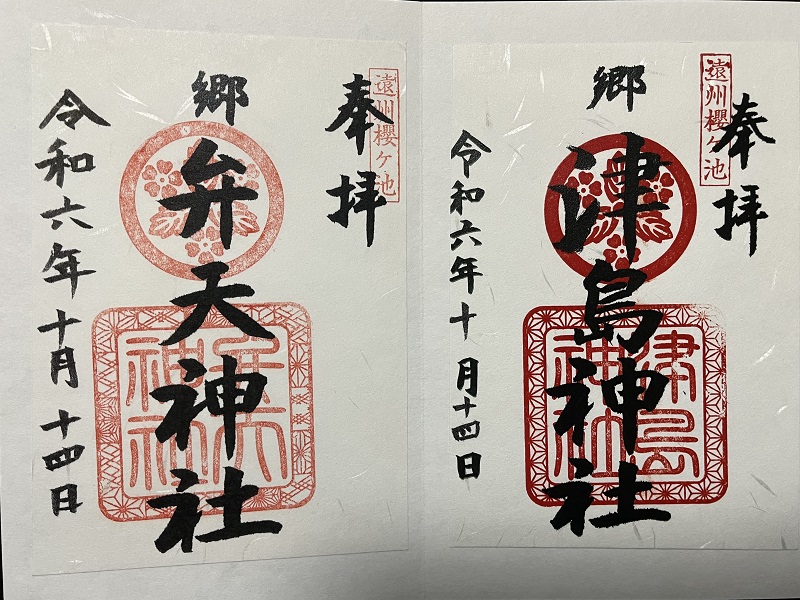 遠州櫻ケ池
奉拝
郷
津島神社
津島神社
令和六年十月十四日
遠州櫻ケ池
奉拝
郷
弁天神社
弁天神社
令和六年十月十四日